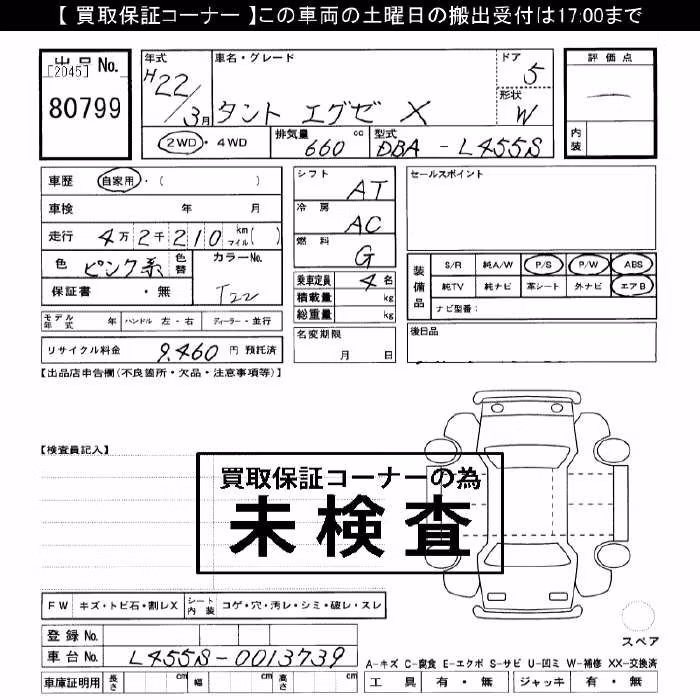 【 買取保証コーナー 】この車両の土曜日の搬出受付は17:00まで
出品 No.
[2045]
80799
年式 H22/3月
車名・グレード タント エグゼ X
ドア 5
形状 W
評価点
内装
2WD・4WD
排気量 660 cc
型式 DBA - L455S
車歴 自家用・( )
車検 年 月
走行 4万2千210 km マイル( )
色 ピンク系 色替
カラーNo. T22
保証書 ・無
シフト AT
冷房 AC
燃料 G
乗車定員 4名
積載量 kg
総重量 kg
セールスポイント
装備品
S/R 純A/W P/S P/W ABS
純TV 純ナビ 革シート 外ナビ エアB
ナビ型番:
モデル年式 年 ハンドル 左・右 ディーラー・並行
リサイクル料金 9,460 円 預託済
名変期限 月 日
後日品
【出品店申告欄(不良箇所・欠品・注意事項等)】
【検査員記入】
買取保証コーナーの為
未検査
FW キズ・トビ石・割レX シート内装 コゲ・穴・汚レ・シミ・破レ・スレ
登録No.
車台No. L455S-0013739
車庫証明用 長さ cm 幅 cm 高さ cm
スペア
A-キズ C-腐食 E-エクボ S-サビ U-凹ミ W-補修 XX-交換済
工具 有・無 ジャッキ 有・無